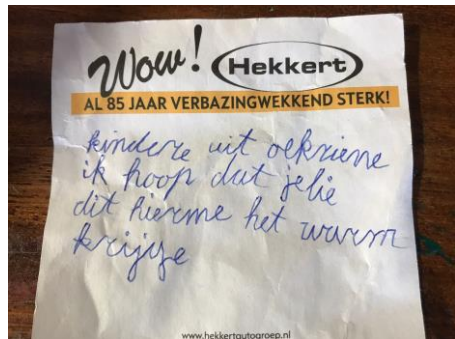 Wow!
Hekkert
AL 85 JAAR VERBAZINGWEKKEND STERK!
kindere uit oekriene
ik hoop dat jelie
dit hierme het warm
krijge
www.hekkertautogroep.nl